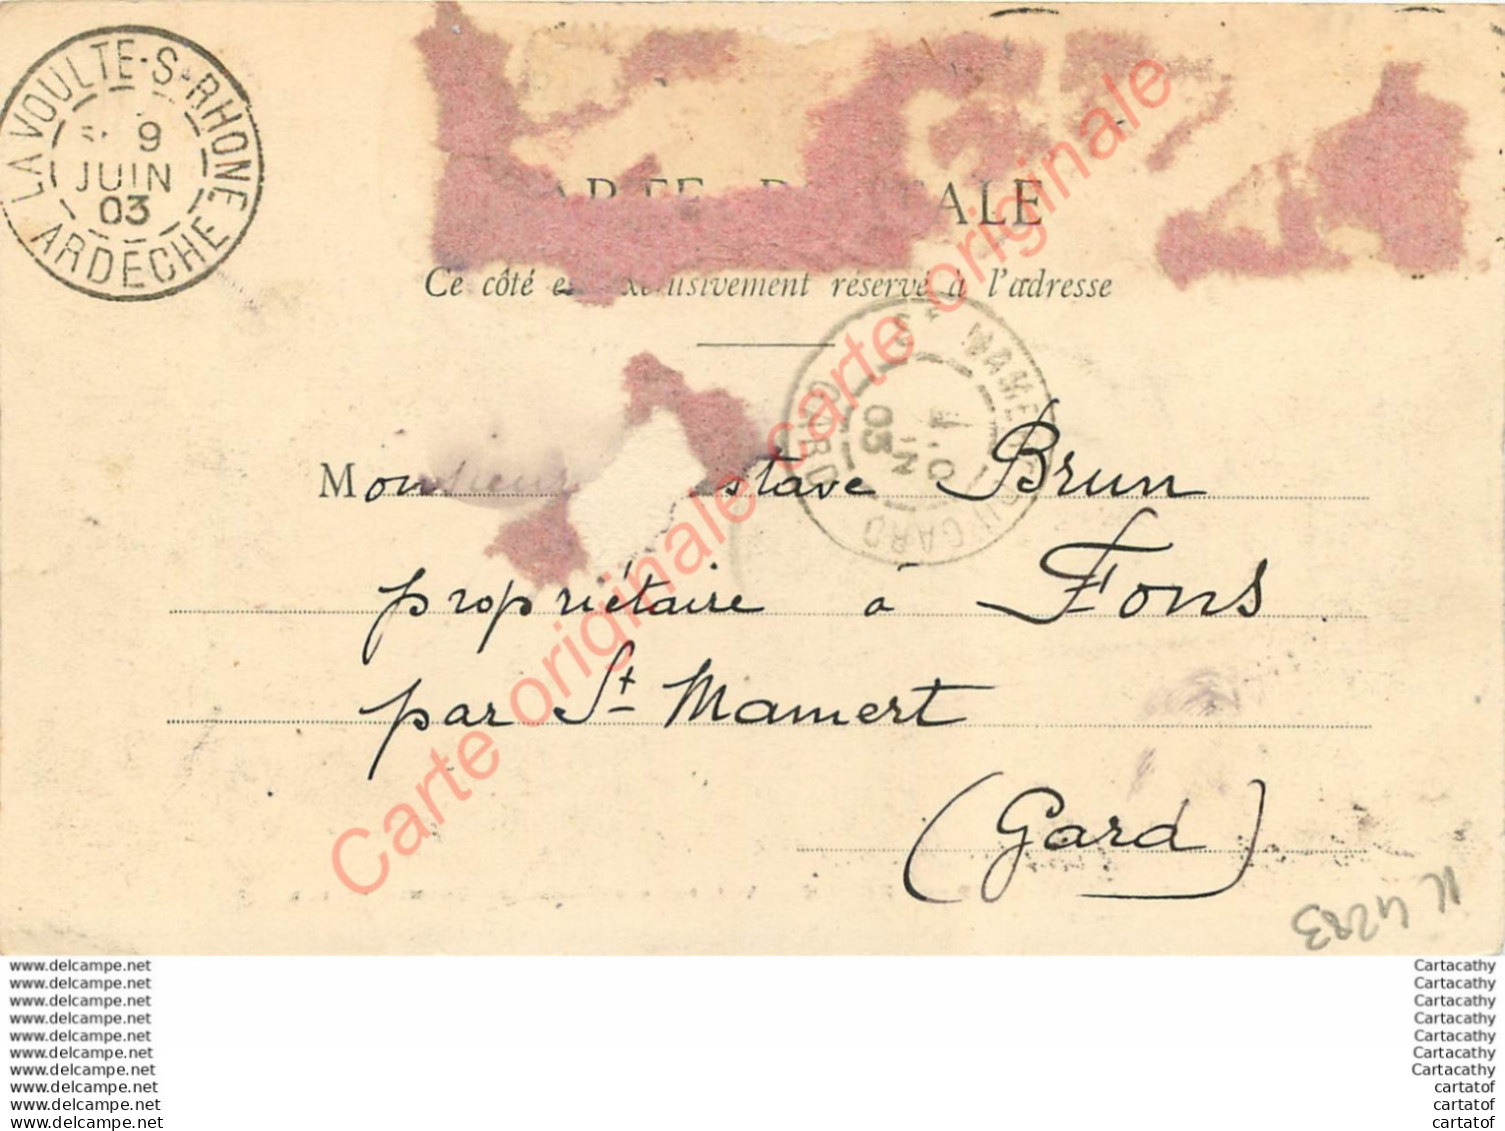 LA VOULTE-S-RHONE
9
JUIN
03
ARDÈCHE
CARTE POSTALE
Ce côté est exclusivement réservé à l'adresse
St MAMERT-DU-GARD
10
JUIN
03
GARD
Monsieur stave Brun
propriétaire à Fons
par St Mamert
(Gard)
Carte originale carte originale carte originale
www.delcampe.net
www.delcampe.net
www.delcampe.net
www.delcampe.net
www.delcampe.net
www.delcampe.net
www.delcampe.net
www.delcampe.net
www.delcampe.net
www.delcampe.net
Cartacathy
Cartacathy
Cartacathy
Cartacathy
Cartacathy
Cartacathy
Cartacathy
cartatof
cartatof
cartatof